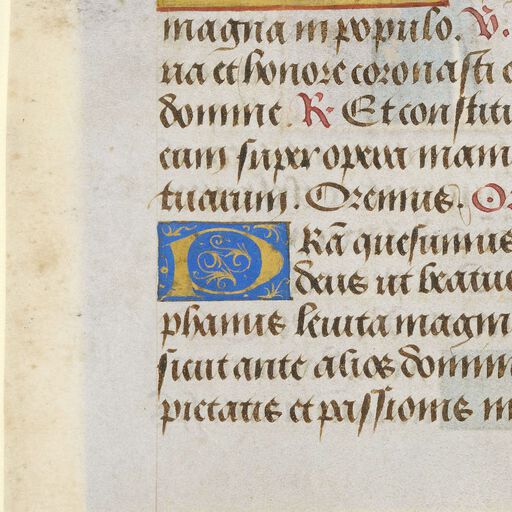 magna in populo. V.
ria et honore coronasti e
domine. R. Et constitu
eum super opera man
tuarum. Oremus. Or
DRā quesumus
deus ut beatus
phanus leuita magni
sicut ante alios domin
pietatis et passionis